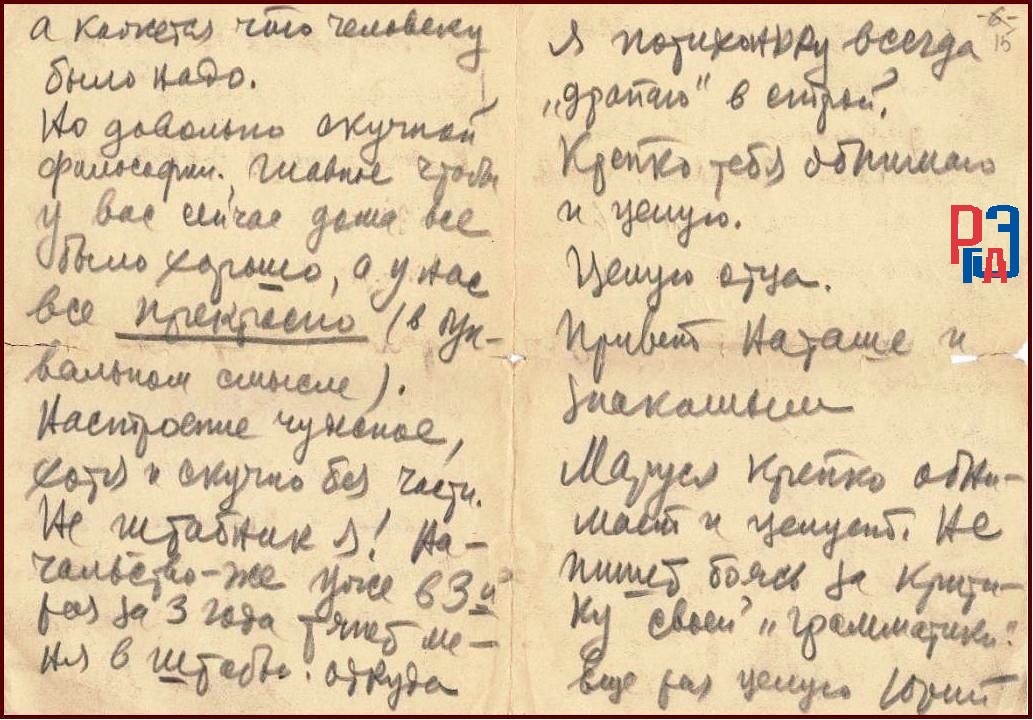 а кажется что человеку
было надо.
Но довольно скучной
философии, главное чтобы
у вас сейчас дома все
было хорошо, а у нас
все прекрасно (в бук-
вальном смысле).
Настроение чудное,
хотя и скучно без части.
Не штабник я! На-
чальство-же уже в 3й
раз за 3 года тянет ме-
ня в штабы, откуда
-6-
15
я потихоньку всегда
„драпаю" в строй.
Крепко тебя обнимаю
и целую.
Целую отца.
Привет Наташе и
знакомым
Маруся крепко обни-
мает и целует. Не
пишет боясь за крити-
ку своей „грамматики".
Еще раз целую Юрий
РГАЭ